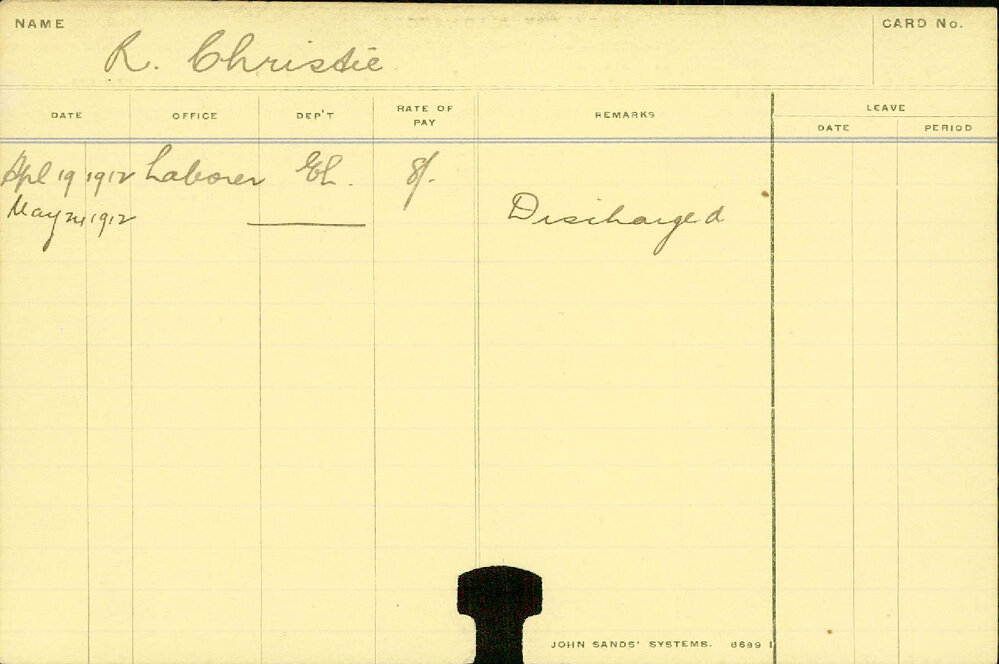 NAME
CARD No.
R. Christie
DATE OFFICE DEP'T RATE OF PAY REMARKS LEAVE
DATE PERIOD
Apl 19 1912 Laborer 8/.
May 1912 Discharged
JOHN SANDS' SYSTEMS. 8689 1